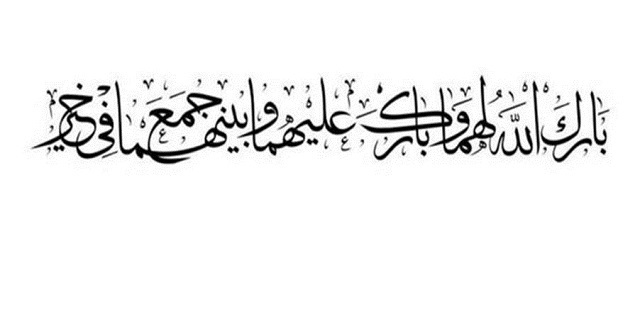 بَارَكَ اللَّهُ لهما وبارك عليهما وجَمَعَ بينهما فِي خير